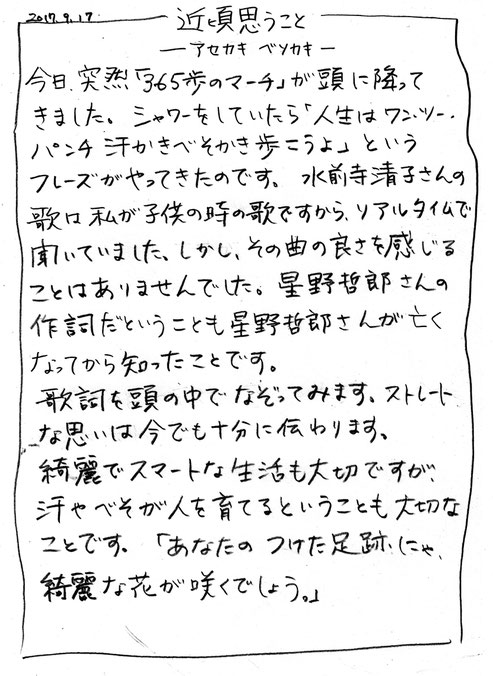 2017.9.17
近頃思うこと
―アセカキ ベソカキ―
今日、突然「365歩のマーチ」が頭に降って
きました。シャワーをしていたら「人生はワン・ツー・
パンチ 汗かきべそかき歩こうよ」という
フレーズがやってきたのです。水前寺清子さんの
歌は私が子供の時の歌ですから、リアルタイムで
聞いていました、しかし、その曲の良さを感じる
ことはありませんでした。星野哲郎さんの
作詞だということも星野哲郎さんが亡く
なってから知ったことです。
歌詞を頭の中でなぞってみます、ストレート
な思いは今でも十分に伝わります。
綺麗でスマートな生活も大切ですが、
汗やべそが人を育てるということも大切な
ことです。「あなたの つけた足跡にゃ、
綺麗な花が咲くでしょう。」